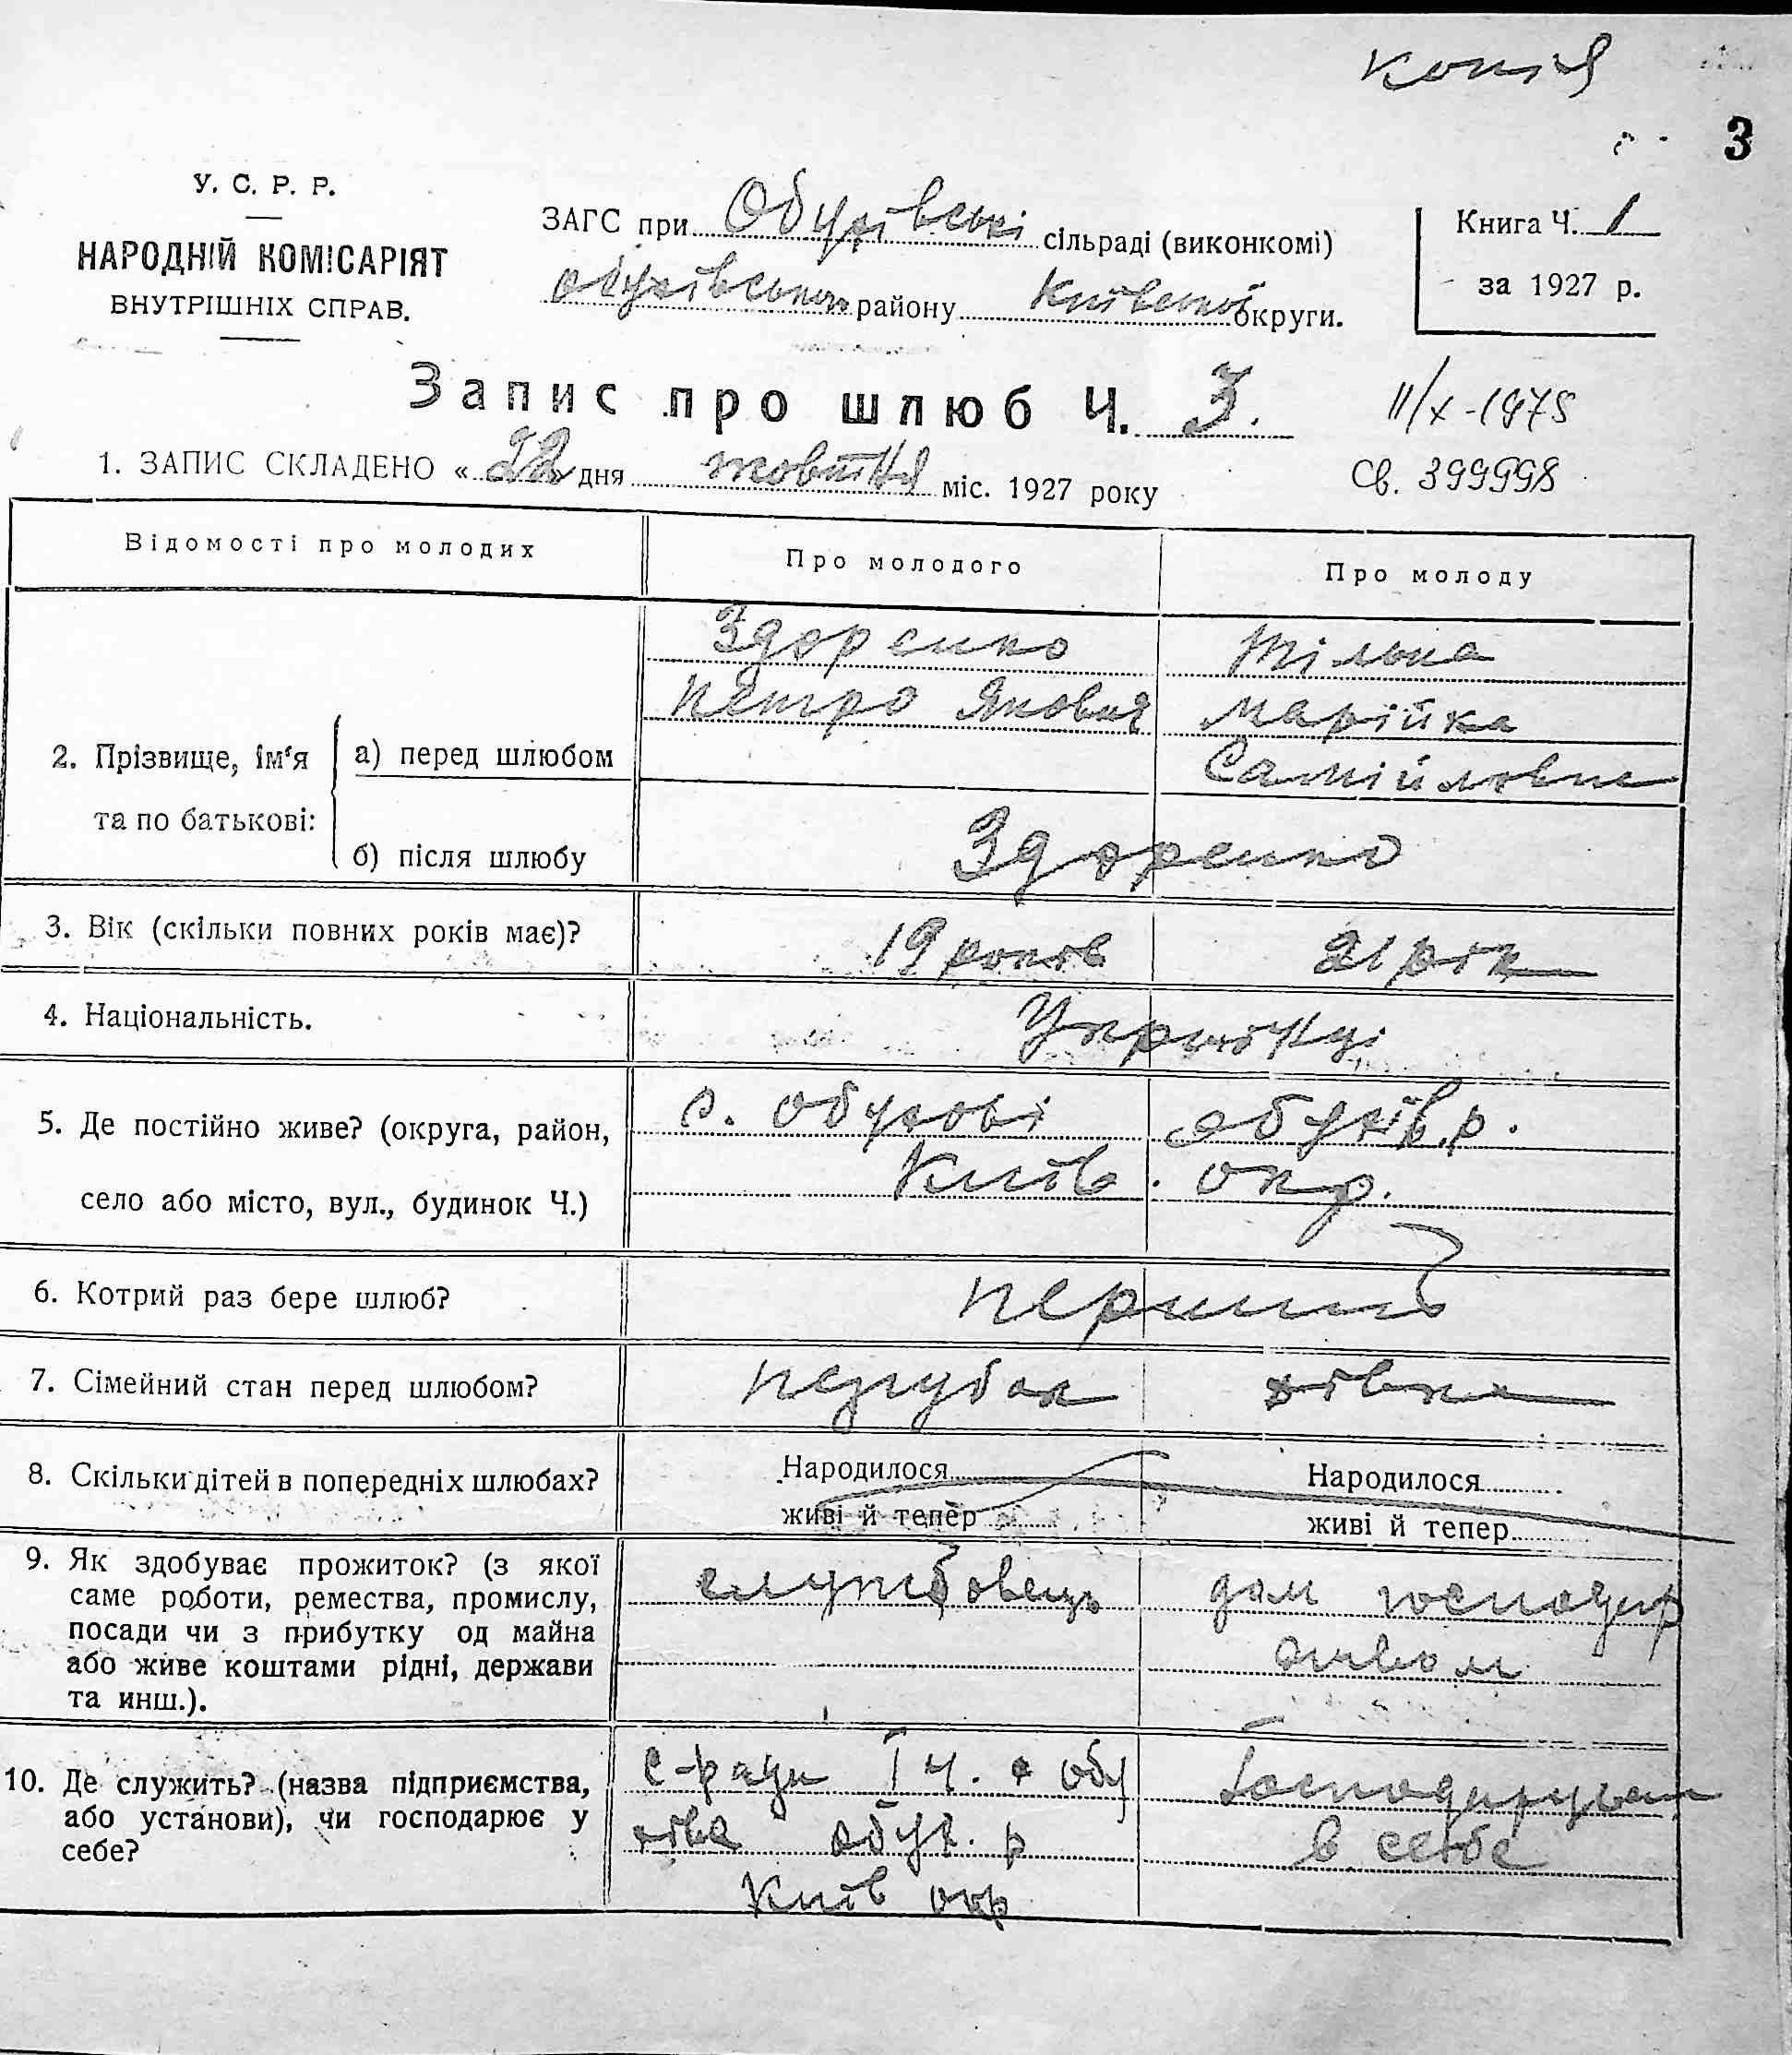 копія
3
У. С. Р. Р.
НАРОДНІЙ КОМІСАРІЯТ
ВНУТРІШНІХ СПРАВ.
ЗАГС при Обухівські сільраді (виконкомі)
обухівського району Київської округи.
Книга Ч. 1
за 1927 р.
Запис про шлюб Ч. 3.
11/X-1975
1. ЗАПИС СКЛАДЕНО « 22 дня жовтня міс. 1927 року
Св. 399998
Відомості про молодих
Про молодого
Про молоду
2. Прізвище, ім'я та по батькові:
а) перед шлюбом
Здоренко
Петро Якович
Тілька
Марійка
Самійловна
б) після шлюбу
Здоренко
3. Вік (скільки повних років має)?
19 років
21 рік
4. Національність.
Українці
5. Де постійно живе? (округа, район,
село або місто, вул., будинок Ч.)
с. Обухові Обухів. р.
Київ. окр.
6. Котрий раз бере шлюб?
перший
7. Сімейний стан перед шлюбом?
парубок
дівка
8. Скільки дітей в попередніх шлюбах?
Народилося
живі й тепер
Народилося
живі й тепер
9. Як здобуває прожиток? (з якої
саме роботи, ремества, промислу,
посади чи з прибутку од майна
або живе коштами рідні, держави
та инш.).
службовець
дом господар
ством
10. Де служить? (назва підприємства,
або установи), чи господарює у
себе?
С-ради І ч. обу
хова обух. р
Київ окр
в себе